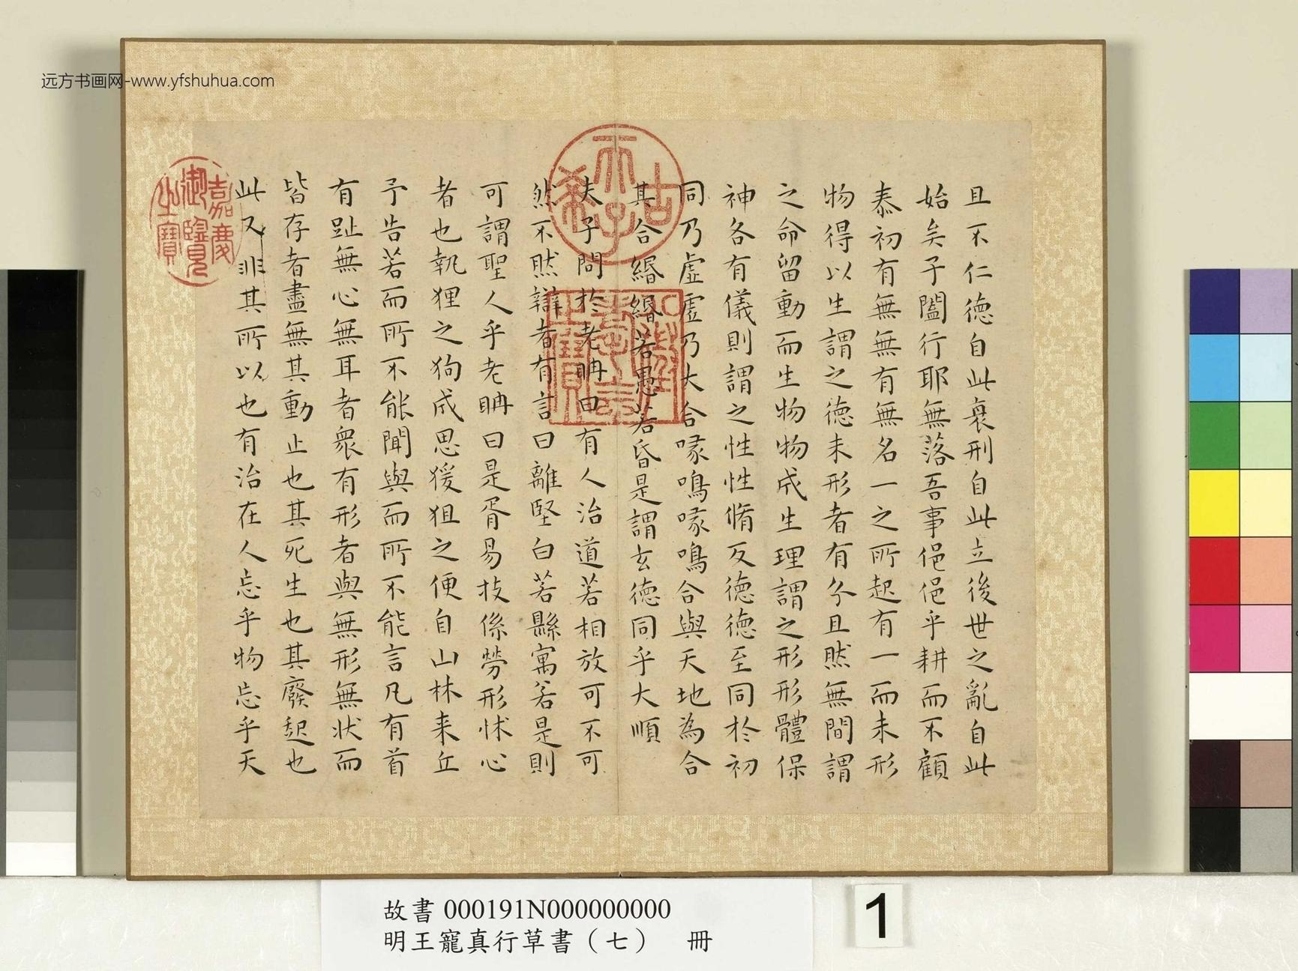 远方书画网-www.yfshuhua.com
且不仁德自此衰刑自此立後世之亂自此
始矣子闔行耶無落吾事俋俋乎耕而不顧
泰初有無無有無名一之所起有一而未形
物得以生謂之德未形者有分且然無間謂
之命留動而生物物成生理謂之形形體保
神各有儀則謂之性性脩反德德至同於初
同乃虛虛乃大合喙鳴喙鳴合與天地為合
其合緡緡若愚若昏是謂玄德同乎大順
夫子問於老聃曰有人治道若相放可不可
然不然辯者有言曰離堅白若縣寓若是則
可謂聖人乎老聃曰是胥易技係勞形怵心
者也執狸之狗成思猨狙之便自山林来丘
予告若而所不能聞與而所不能言凡有首
有趾無心無耳者衆有形者與無形無狀而
皆存者盡無其動止也其死生也其廢起也
此又非其所以也有治在人忘乎物忘乎天
古希天子
嘉慶御覽之寶
故書 000191N000000000
明王寵真行草書（七） 冊
1